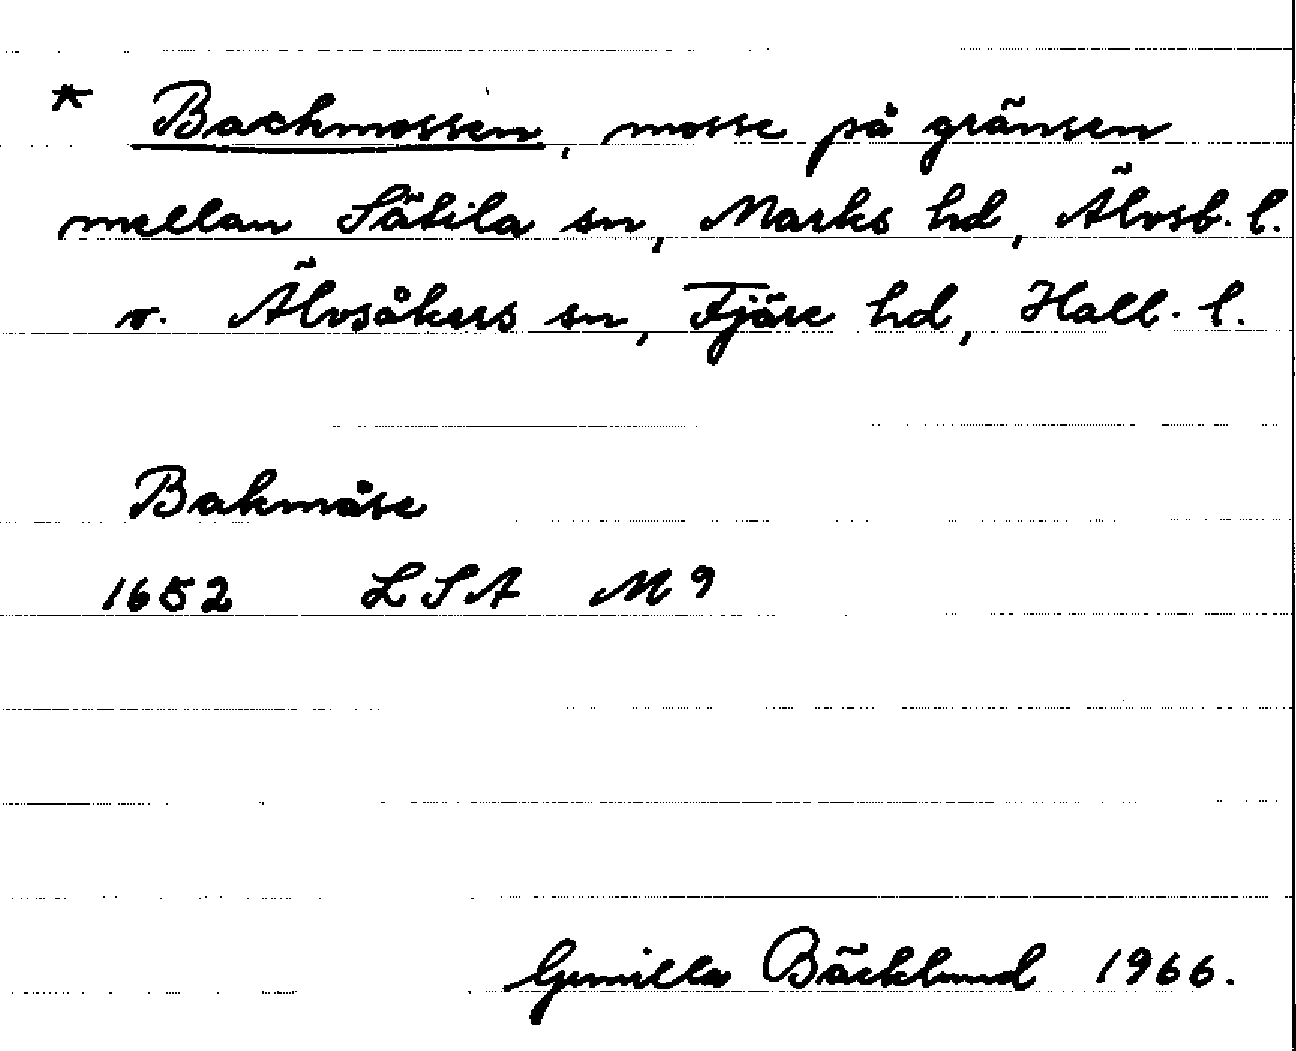 * Backmossen, mosse på gränsen
mellan Sätila sn, Marks hd, Älvsb. l.
o. Älvsåkers sn, Fjäre hd, Hall. l.
Bakmåse
1652 LSA M9
Gunilla Bäcklund 1966.